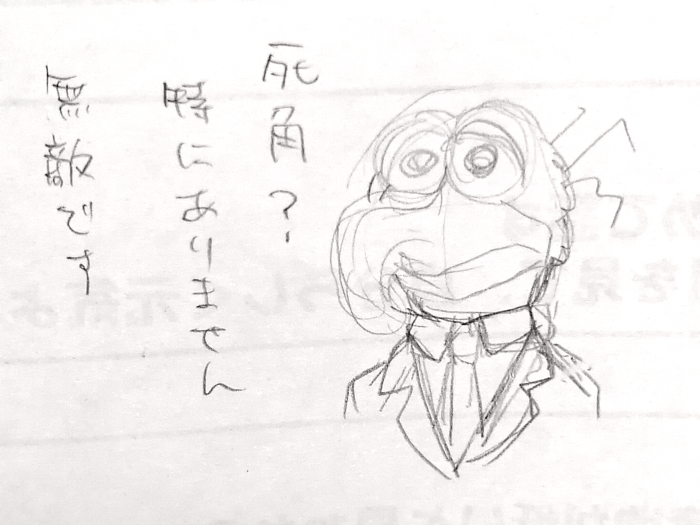 死角?
特にありません
無敵です